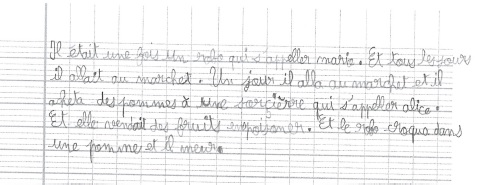 Il était une fois un robo qui s'appeller mario. Et tous les jours
il allait au marchet. Un jour il alla au marchet et il
acheta des pommes à une sorcièrre qui s'appellar alice.
Et elle vendait des fruits empoisoner. Et le robo croqua dans
une pomme et il meur.